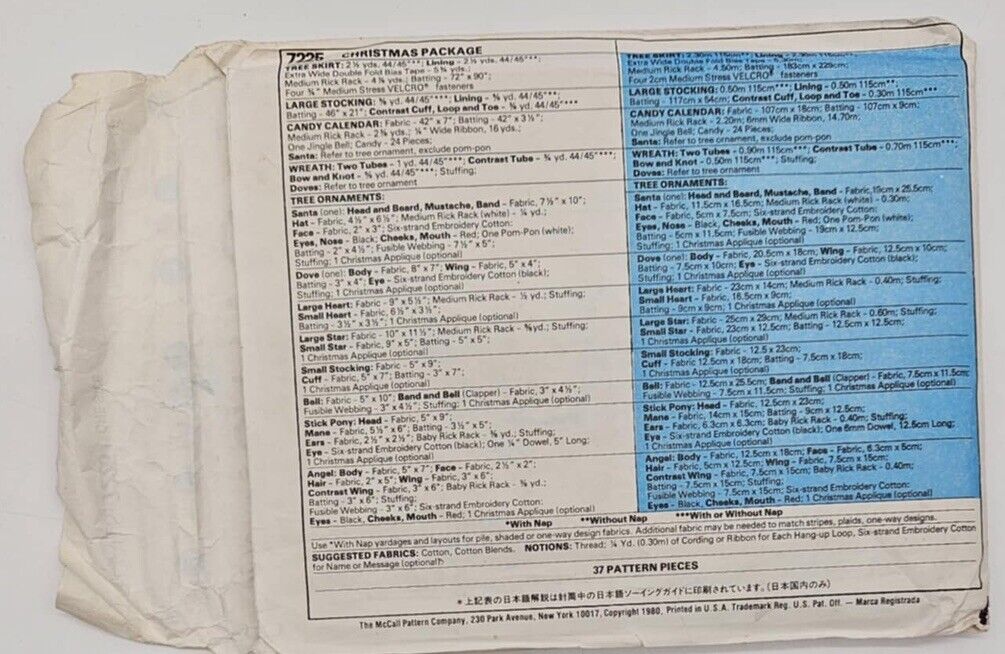 7225 CHRISTMAS PACKAGE
TREE SKIRT: 2½ yds. 44/45"***; Lining - 2½ yds. 44/45"***;
Extra Wide Double Fold Bias Tape - 5¾ yds.;
Medium Rick Rack - 4⅞ yds.; Batting - 72" x 90";
Four ¾" Medium Stress VELCRO® fasteners
LARGE STOCKING: ⅝ yd. 44/45"***; Lining - ⅝ yd. 44/45"***;
Batting - 46" x 21"; Contrast Cuff, Loop and Toe - ⅜ yd. 44/45"***
CANDY CALENDAR: Fabric - 42" x 7"; Batting - 42" x 3½";
Medium Rick Rack - 2⅜ yds.; ¼" Wide Ribbon, 16 yds.;
One Jingle Bell; Candy - 24 Pieces;
Santa: Refer to tree ornament, exclude pom-pon
WREATH: Two Tubes - 1 yd. 44/45"***; Contrast Tube - ¾ yd. 44/45"***;
Bow and Knot - ⅝ yd. 44/45"***; Stuffing;
Doves: Refer to tree ornament
TREE ORNAMENTS:
Santa (one): Head and Beard, Mustache, Band - Fabric, 7½" x 10";
Hat - Fabric, 4½" x 6½"; Medium Rick Rack (white) - ¼ yd.;
Face - Fabric, 2" x 3"; Six-strand Embroidery Cotton:
Eyes, Nose - Black; Cheeks, Mouth - Red; One Pom-Pon (white);
Batting - 2" x 4½"; Fusible Webbing - 7½" x 5";
Stuffing; 1 Christmas Applique (optional)
Dove (one): Body - Fabric, 8" x 7"; Wing - Fabric, 5" x 4";
Batting - 3" x 4"; Eye - Six-strand Embroidery Cotton (black);
Stuffing; 1 Christmas Applique (optional)
Large Heart: Fabric - 9" x 5½"; Medium Rick Rack - ½ yd.; Stuffing;
Small Heart - Fabric, 6½" x 3½";
Batting - 3½" x 3½"; 1 Christmas Applique (optional)
Large Star: Fabric - 10" x 11½"; Medium Rick Rack - ⅝yd.; Stuffing;
Small Star - Fabric, 9" x 5"; Batting - 5" x 5";
1 Christmas Applique (optional)
Small Stocking: Fabric - 5" x 9";
Cuff - Fabric, 5" x 7"; Batting - 3" x 7";
1 Christmas Applique (optional)
Bell: Fabric - 5" x 10"; Band and Bell (Clapper) - Fabric, 3" x 4½";
Fusible Webbing - 3" x 4½"; Stuffing; 1 Christmas Applique (optional)
Stick Pony: Head - Fabric, 5" x 9";
Mane - Fabric, 5½" x 6"; Batting - 3½" x 5";
Ears - Fabric, 2½" x 2½"; Baby Rick Rack - ⅜ yd.; Stuffing;
Eye - Six-strand Embroidery Cotton (black); One ¼" Dowel, 5" Long;
1 Christmas Applique (optional)
Angel: Body - Fabric, 5" x 7"; Face - Fabric, 2½" x 2";
Hair - Fabric, 2" x 5"; Wing - Fabric, 3" x 6";
Contrast Wing - Fabric, 3" x 6"; Baby Rick Rack - ⅜ yd.;
Batting - 3" x 6"; Stuffing;
Fusible Webbing - 3" x 6"; Six-strand Embroidery Cotton:
Eyes - Black, Cheeks, Mouth - Red; 1 Christmas Applique (optional)
TREE SKIRT: 2.30m 115cm**; Lining - 2.30m 115cm***;
Medium Rick Rack - 4.50m; Batting - 183cm x 229cm;
Four 2cm Medium Stress VELCRO® fasteners
LARGE STOCKING: 0.60m 115cm***; Lining - 0.50m 115cm**;
Batting - 117cm x 54cm; Contrast Cuff, Loop and Toe - 0.30m 115cm***
CANDY CALENDAR: Fabric - 107cm x 18cm; Batting - 107cm x 9cm;
Medium Rick Rack - 2.20m; 6mm Wide Ribbon, 14.70m;
One Jingle Bell; Candy - 24 Pieces;
Santa: Refer to tree ornament, exclude pom-pon
WREATH: Two Tubes - 0.90m 115cm***; Contrast Tube - 0.70m 115cm***;
Bow and Knot - 0.50m 115cm***; Stuffing;
Doves: Refer to tree ornament
TREE ORNAMENTS:
Santa (one): Head and Beard, Mustache, Band - Fabric, 19cm x 25.5cm;
Hat - Fabric, 11.5cm x 16.5cm; Medium Rick Rack (white) - 0.30m;
Face - Fabric, 5cm x 7.5cm; Six-strand Embroidery Cotton:
Eyes, Nose - Black; Cheeks, Mouth - Red; One Pom-Pon (white);
Batting - 5cm x 11.5cm; Fusible Webbing - 19cm x 12.5cm;
Stuffing; 1 Christmas Applique (optional)
Dove (one): Body - Fabric, 20.5cm x 18cm; Wing - Fabric, 12.5cm x 10cm;
Batting - 7.5cm x 10cm; Eye - Six-strand Embroidery Cotton (black);
Stuffing; 1 Christmas Applique (optional)
Large Heart: Fabric - 23cm x 14cm; Medium Rick Rack - 0.40m; Stuffing;
Small Heart - Fabric, 16.5cm x 9cm;
Batting - 9cm x 9cm; 1 Christmas Applique (optional)
Large Star: Fabric - 25cm x 29cm; Medium Rick Rack - 0.60m; Stuffing;
Small Star - Fabric, 23cm x 12.5cm; Batting - 12.5cm x 12.5cm;
1 Christmas Applique (optional)
Small Stocking: Fabric - 12.5 x 23cm;
Cuff - Fabric 12.5cm x 18cm; Batting - 7.5cm x 18cm;
1 Christmas Applique (optional)
Bell: Fabric - 12.5cm x 25.5cm; Band and Bell (Clapper) - Fabric, 7.5cm x 11.5cm;
Fusible Webbing - 7.5cm x 11.5cm; Stuffing; 1 Christmas Applique (optional)
Stick Pony: Head - Fabric, 12.5cm x 23cm;
Mane - Fabric, 14cm x 15cm; Batting - 9cm x 12.5cm;
Ears - Fabric, 6.3cm x 6.3cm; Baby Rick Rack - 0.40m; Stuffing;
Eye - Six-strand Embroidery Cotton (black); One 6mm Dowel, 12.5cm Long;
1 Christmas Applique (optional)
Angel: Body - Fabric, 12.5cm x 18cm; Face - Fabric, 6.3cm x 5cm;
Hair - Fabric, 5cm x 12.5cm; Wing - Fabric, 7.5cm x 15cm;
Contrast Wing - Fabric, 7.5cm x 15cm; Baby Rick Rack - 0.40m;
Batting - 7.5cm x 15cm; Stuffing;
Fusible Webbing - 7.5cm x 15cm; Six-strand Embroidery Cotton:
Eyes - Black, Cheeks, Mouth - Red; 1 Christmas Applique (optional)
*With Nap **Without Nap ***With or Without Nap
Use *With Nap yardages and layouts for pile, shaded or one-way design fabrics. Additional fabric may be needed to match stripes, plaids, one-way designs.
SUGGESTED FABRICS: Cotton, Cotton Blends. NOTIONS: Thread; ¼ Yd. (0.30m) of Cording or Ribbon for Each Hang-up Loop, Six-strand Embroidery Cotton
for Name or Message (optional).
37 PATTERN PIECES
*上記表の日本語解説は封筒中の日本語ソーイングガイドに印刷されています。(日本国内のみ)
The McCall Pattern Company, 230 Park Avenue, New York 10017, Copyright 1980, Printed in U.S.A. Trademark Reg. U.S. Pat. Off. — Marca Registrada